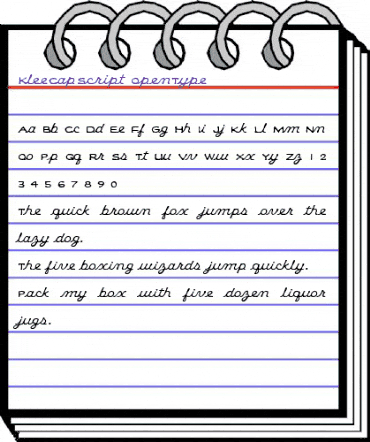 Kleecapscript OpenType
Aa Bb Cc Dd Ee Ff Gg Hh Ii Jj Kk Ll Mm Nn
Oo Pp Qq Rr Ss Tt Uu Vv Ww Xx Yy Zz 1 2
3 4 5 6 7 8 9 0
The quick brown fox jumps over the
lazy dog.
The five boxing wizards jump quickly.
Pack my box with five dozen liquor
jugs.